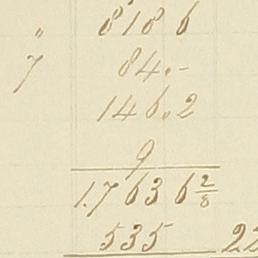 " 818 6
7 84.-
146.2
9
1.763 6 2/8
535 22